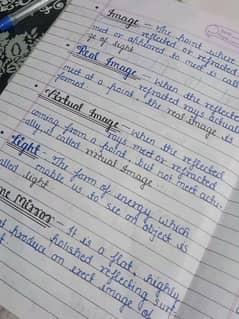 Image - The point where
reflected or refracted
met or appeared to meet is called
ge of light.
Real Image - When the reflected
or refracted rays actual
meet at a point, the real Image is
formed.
Virtual Image - When the reflected
rays meet or refracted
coming from a point, but not meet actu-
ally, it called virtual Image.
Light - The form of energy which
enable us to see an object is
called light.
ane Mirror - It is a flat, highly
polished reflecting surf
d produce an erect image of